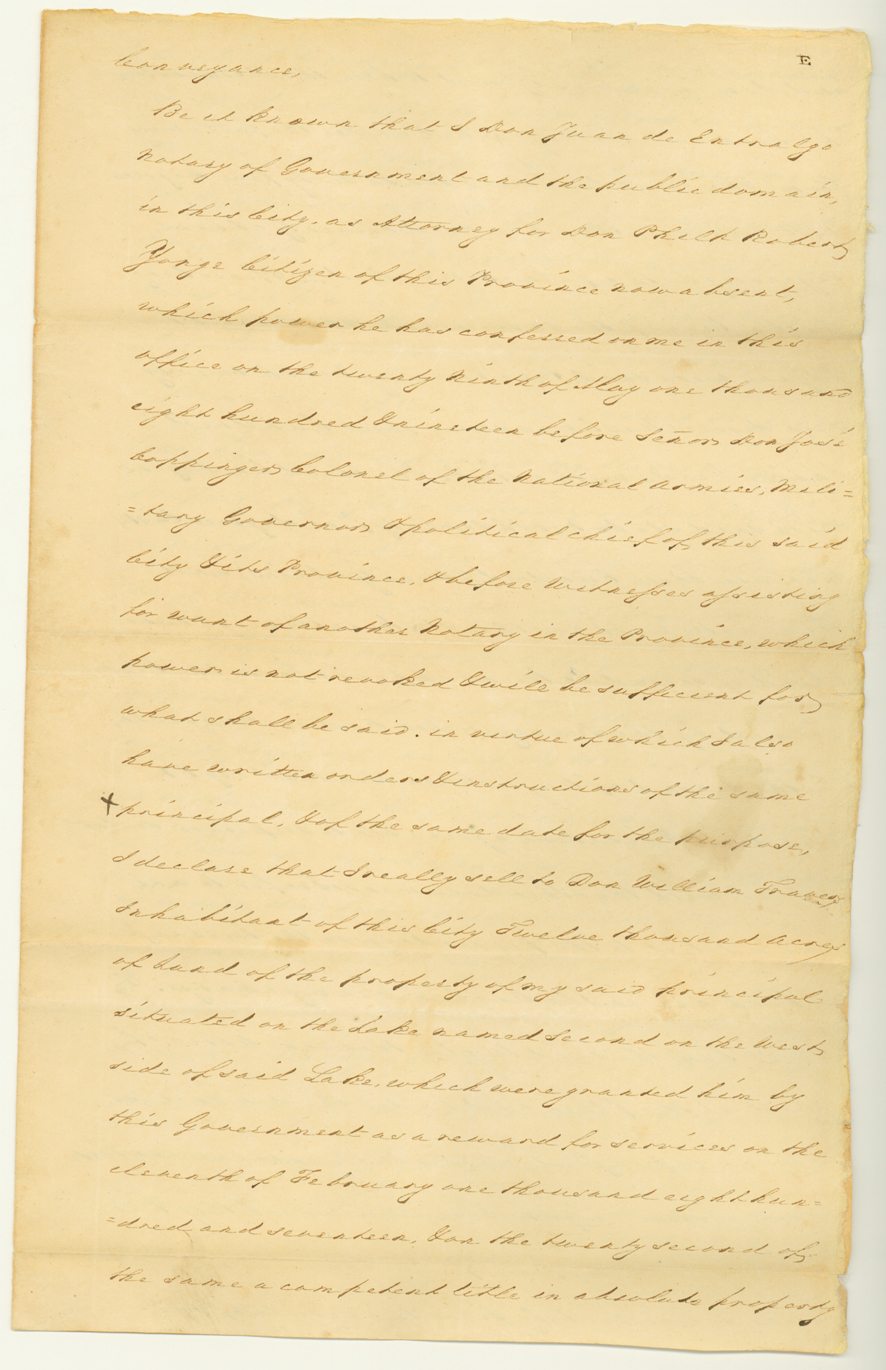 E
Conveyance,
Be it known that I Don Juan de Entralgo
Notary of Government and the public domain,
in this City, as Attorney for Don Philip Robert
Yonge Citizen of this Province now absent,
which power he has conferred on me in this
office on the twenty Ninth of May one thousand
eight hundred & nineteen before Señor Don José
Coppinger, Colonel of the National armies, Mili=
=tary Governor & political chief of this said
City & its Province, & before witnesses assisting
for want of another Notary in the Province, which
power is not revoked & will be sufficient for
what shall be said. in virtue of which I also
have written orders & instructions of the same
+ principal, & of the same date for the purpose,
I declare that I really sell to Don William Travers
Inhabitant of this City Twelve thousand Acres
of Land of the property of my said principal
situated on the Lake named Second on the West
side of said Lake, which were granted him by
this Government as a reward for services on the
eleventh of February one thousand eight hun=
=dred and seventeen, & on the twenty second of
the same a competent title in absolute property